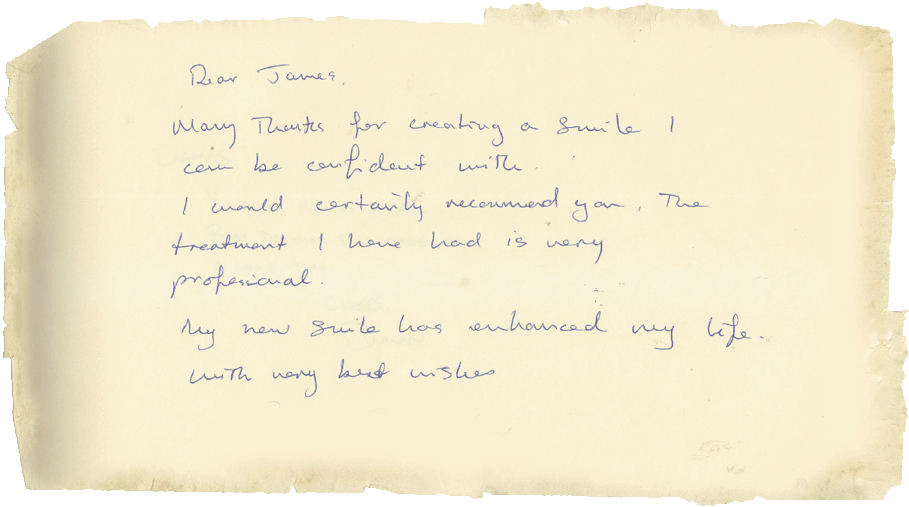 Dear James.
Many Thanks for creating a smile I
can be confident with.
I would certainly recommend you. The
treatment I have had is very
professional.
My new smile has enhanced my life.
with very best wishes